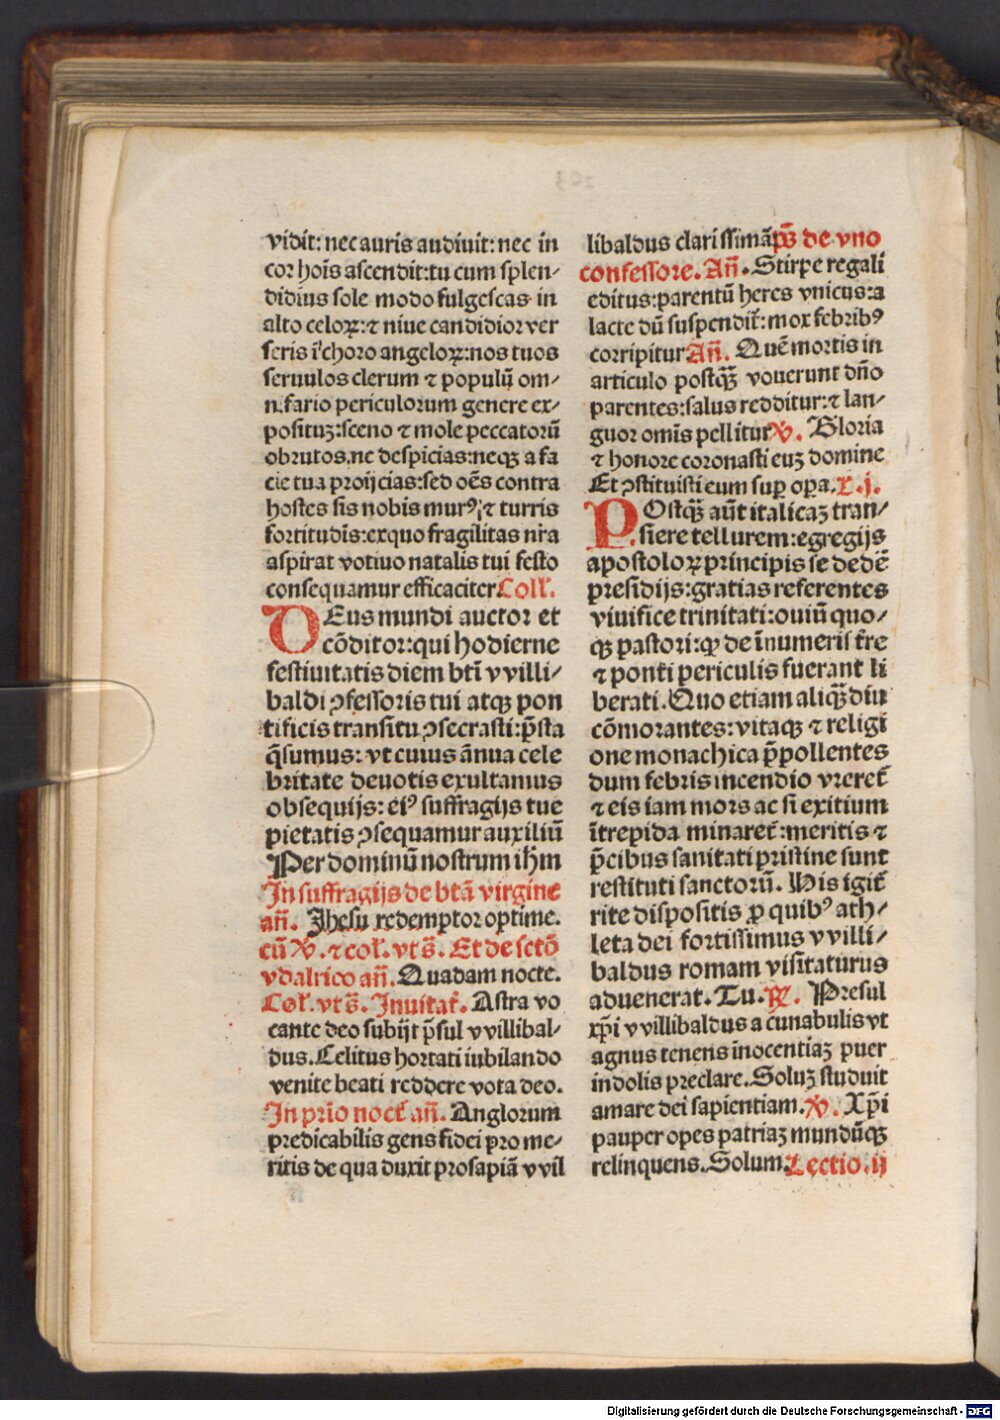 vidit: nec auris audiuit: nec in
cor hoīs ascendit: tu cum splen⸗
didius sole modo fulgescas in
alto celoꝝ: ⁊ niue candidior ver
seris ī choro angeloꝝ: nos tuos
seruulos clerum ⁊ populū om⸗
nifario periculorum genere ex⸗
posituꝫ: sceno ⁊ mole peccatorū
obrutos, ne despicias: neqꝫ a fa
cie tua proijcias: sed oēs contra
hostes sis nobis murꝰ, ⁊ turris
fortitudīs: ex quo fragilitas nr̄a
aspirat votiuo natalis tui festo
consequamur efficaciter Coll̄.
DEus mundi auctor et
cōditor: qui hodierne
festiuitatis diem btī vvilli⸗
baldi ꝯfessoris tui atqꝫ pon
tificis transitu ꝯsecrasti: p̄sta
q̄sumus: vt cuius ānua cele
britate deuotis exultamus
obsequijs: eiꝰ suffragijs tue
pietatis ꝯsequamur auxiliū
Per dominū nostrum ih̄m
In suffragijs de btā virgine
an̄. Jhesu redemptor optime.
cū ℣. ⁊ col̄. vt s̄. Et de sctō
vdalrico an̄. Quadam nocte.
Col̄. vt s̄. Inuitat̄. Astra vo
cante deo subijt p̄sul vvillibal⸗
dus. Celitus hortati iubilando
venite beati reddere vota deo.
In prīo noct̄ an̄. Anglorum
predicabilis gens fidei pro me⸗
ritis de qua duxit prosapiā vvil
libaldus clarissimā p̄s de vno
confessore. An̄. Stirpe regali
editus: parentū heres vnicus: a
lacte dū suspendit̄: mox febribꝰ
corripitur An̄. Quē mortis in
articulo postqꝫ̄ vouerunt dn̄o
parentes: salus redditur: ⁊ lan⸗
guor omīs pellitur ℣. Gloria
⁊ honore coronasti euꝫ domine
Et ꝯstituisti eum suꝑ oꝑa. L. j.
POstqꝫ̄ aūt italicaꝫ tran⸗
siere tellurem: egregijs
apostoloꝝ principis se dedēt
presidijs: gratias referentes
viuifice trinitati: ouiū quo⸗
qꝫ pastori: ꝙ de īnumeris t̄re
⁊ ponti periculis fuerant li
berati. Quo etiam aliqꝫ̄diu
cōmorantes: vitaqꝫ ⁊ religi
one monachica p̄pollentes
dum febris incendio vreret̄
⁊ eis iam mors ac si exitium
ītrepida minaret̄: meritis ⁊
p̄cibus sanitati pristine sunt
restituti sanctorū. His igit̄
rite dispositis ꝓ quibꝰ ath⸗
leta dei fortissimus vvilli⸗
baldus romam visitaturus
aduenerat. Tu. ℟. Presul
xp̄i vvillibaldus a cunabulis vt
agnus tenens inocentiaꝫ puer
indolis preclare. Soluꝫ studuit
amare dei sapientiam. ℣. Xp̄i
pauper opes patriaꝫ mundūqꝫ
relinquens. Solum. Lectio. ij
Digitalisierung gefördert durch die Deutsche Forschungsgemeinschaft - DFG